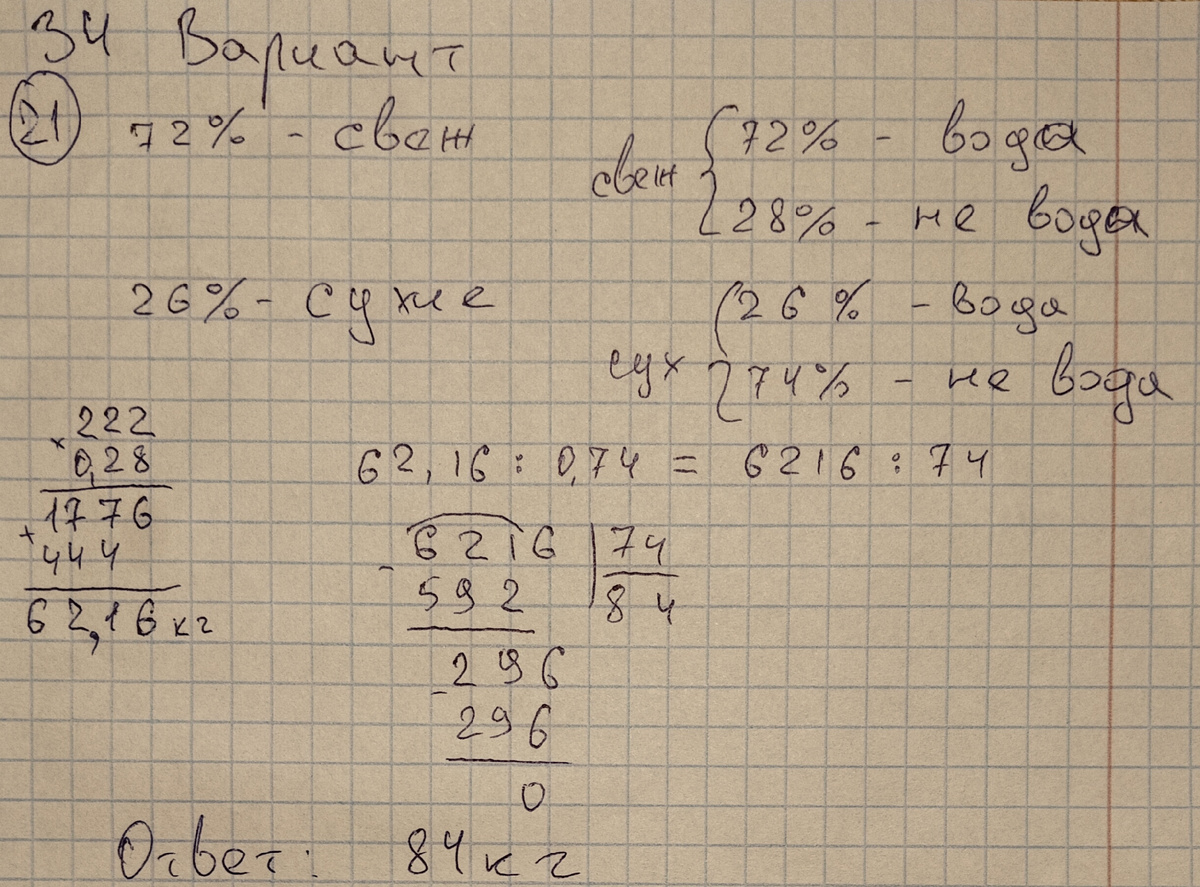 34 Вариант
21 72% - свеж
свеж { 72% - вода
28% - не вода
26% - сухие
сух { 26% - вода
74% - не вода
222
× 0,28
1776
+ 444
62,16 кг
62,16 : 0,74 = 6216 : 74
- 6216 | 74
592 84
- 296
296
0
Ответ: 84 кг